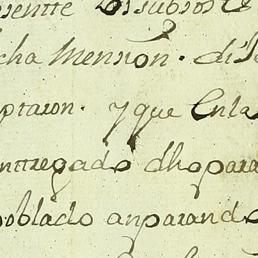 esentte
cha Menzion. di
ptaron. y que Enla
nttregado dhopara
poblado anparand